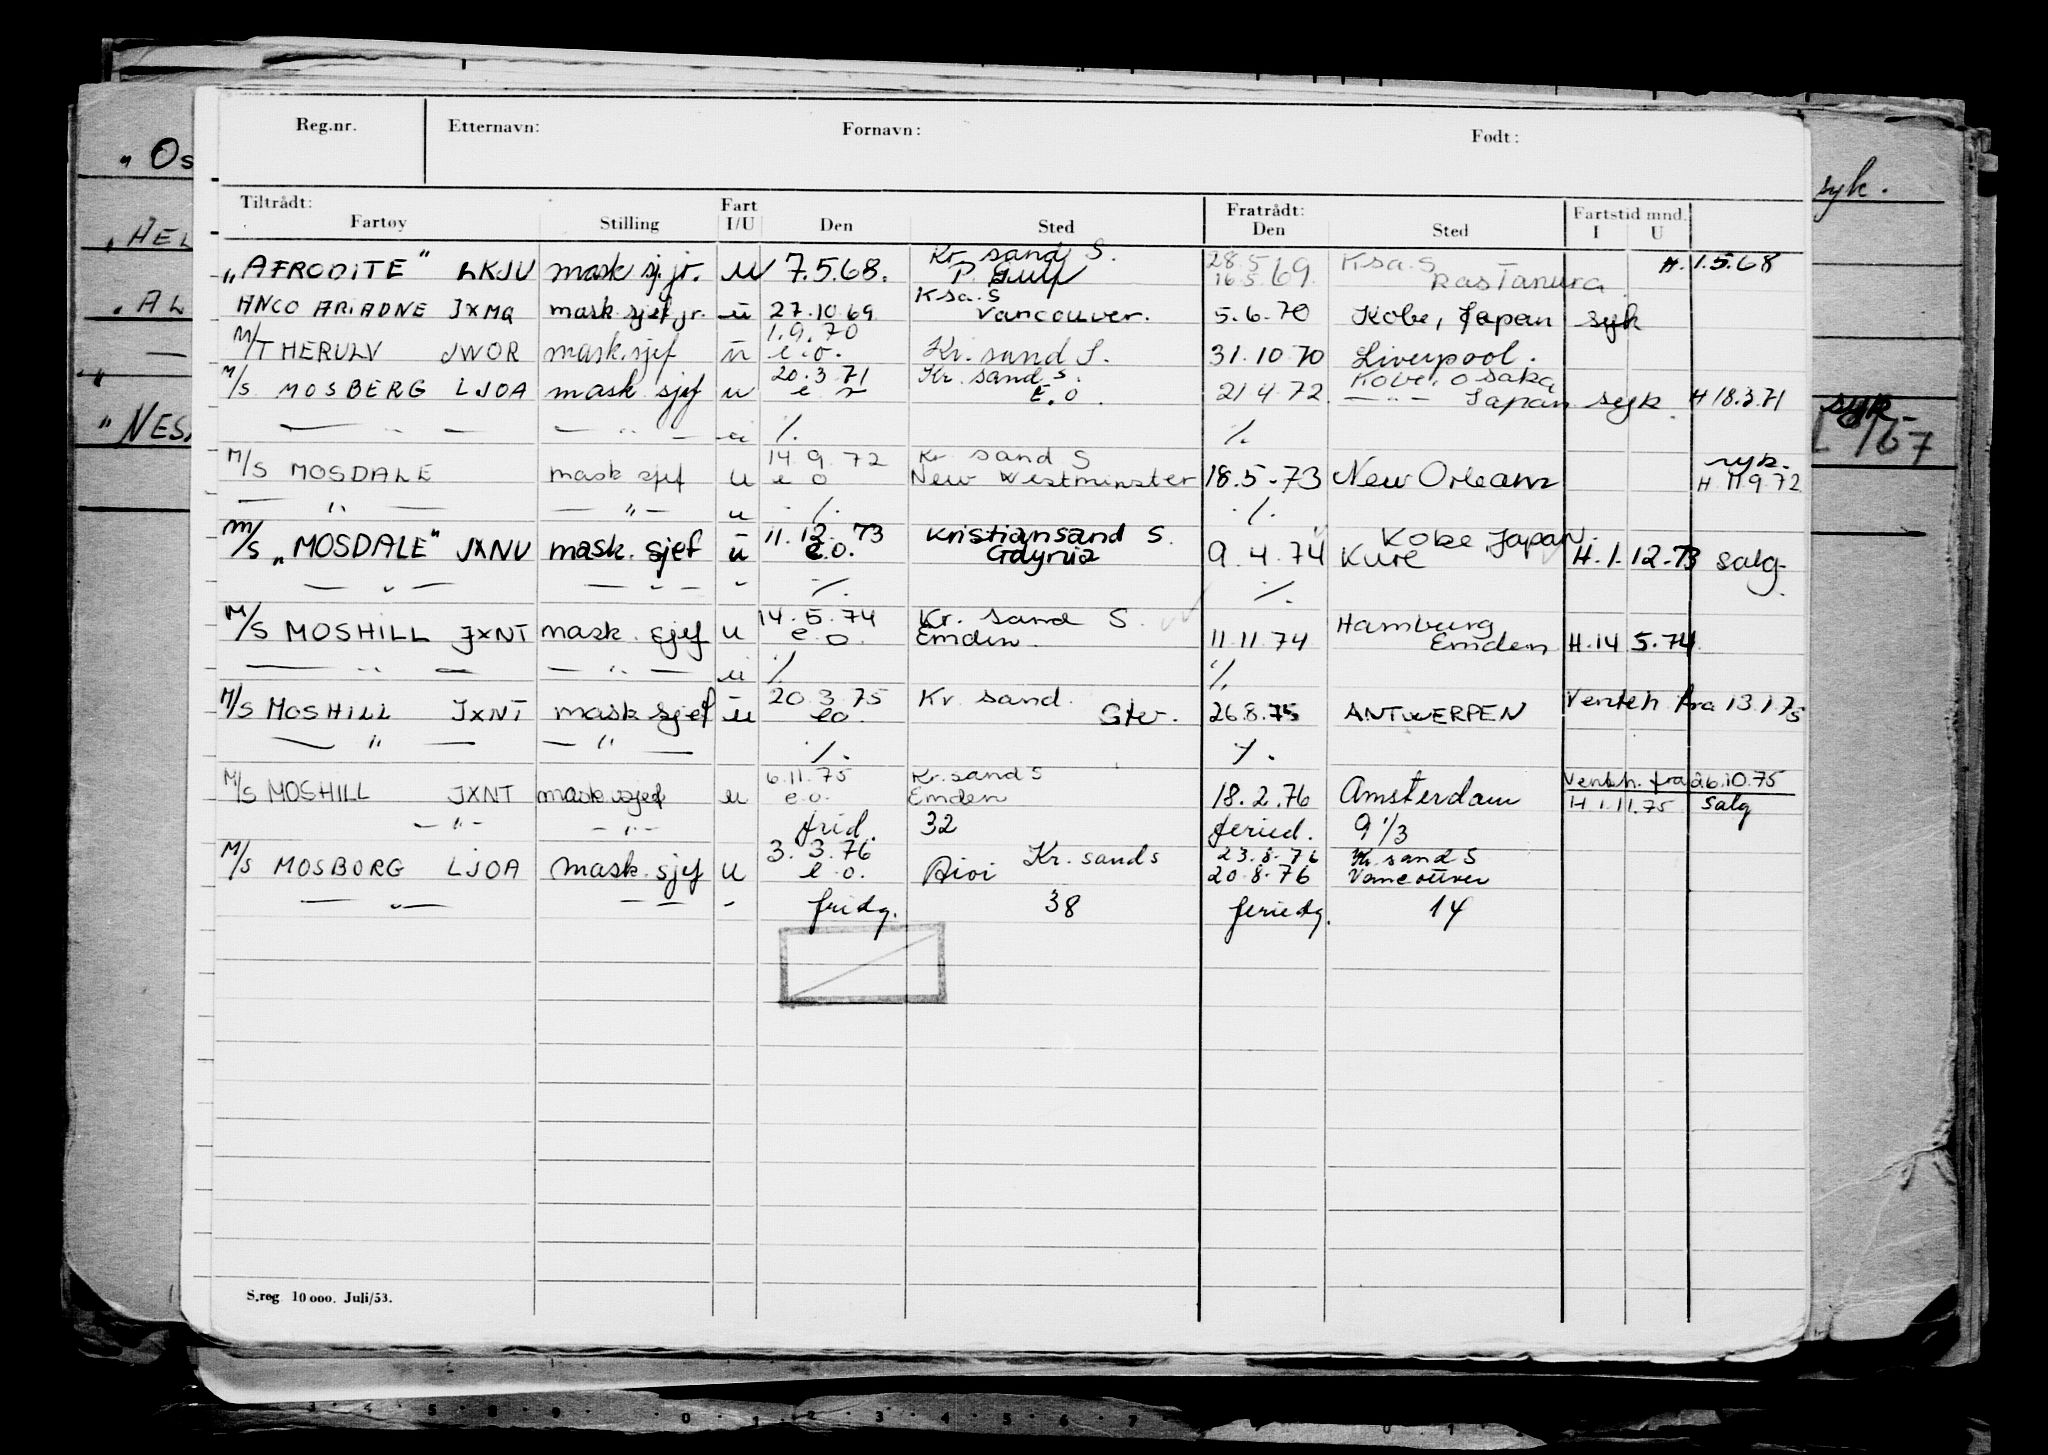 Reg.nr. Etternavn: Fornavn: Født:
Tiltrådt: Fart Fratrådt: Fartstid mnd.
Fartøy Stilling I/U Den Sted Den Sted I U
Kr. sand S. 28.5 Ksa. S
"AFRODITE" LKJV mask sj. jr. u 7.5.68. P. 16.5 69. Ras Tanura H. 1.5.68
Ksa. S
ANCO ARIADNE JXMQ mask. sjef jr. u 27.10 69 Vancouver. 5.6.70 Kobe, Japan syk
1.9.70
M/T HERULV JWOR mask. sjef u e.o. Kr. sand S. 31.10.70 Liverpool.
20.3.71 Kr. sand S. Kobe, Osaka
M/S MOSBERG LJOA mask. sjef u E.O. 21 4 72. — " — Japan syk H 18.3.71
— " — — " — u ·/. ·/.
14.9.72 Kr sand S syk.
M/S MOSDALE mask sjef u e o New Westminster 18.5-73 New Orleans H 11 9.72
— " — — " — u ·/. ·/.
11.12.73 Kristiansand S. Kobe, Japan.
M/S "MOSDALE" JXNV mask. sjef u e.o. Gdynia 9.4.74 Kure H.1.12.73 salg.
— " — — " — " ·/. ·/.
14.5.74 Kr. sand S. Hamburg
M/S MOSHILL JXNT mask. sjef u e.o. Emden. 11.11.74 Emden H.14 5.74.
— " — — " — u ·/. ·/.
20.3.75 Kr. sand. Venteh fra 13.1.75
M/S MOSHILL JXNT mask sjef u eo. Gtv. 26.8.75 ANTWERPEN
— " — — " — ·/. ·/.
6.11.75 Kr. sand S Venteh. fra 26.10.75
M/S MOSHILL JXNT mask sjef u e.o. Emden 18.2.76 Amsterdam H 1.11.75 salg
— " — — " — frid. 32 feried. 9 1/3
3.3.76 Kr. sand S 23.8.76 Kr. sand S
M/S MOSBORG LJOA mask. sjef u e.o. Aioi 20.8.76 Vancouver
— " — — — - fridg. 38 feriedg. 14
S.reg 10 000. Juli/53.
"Os
"HEL
"AL
"NES
syk.
syk
/67